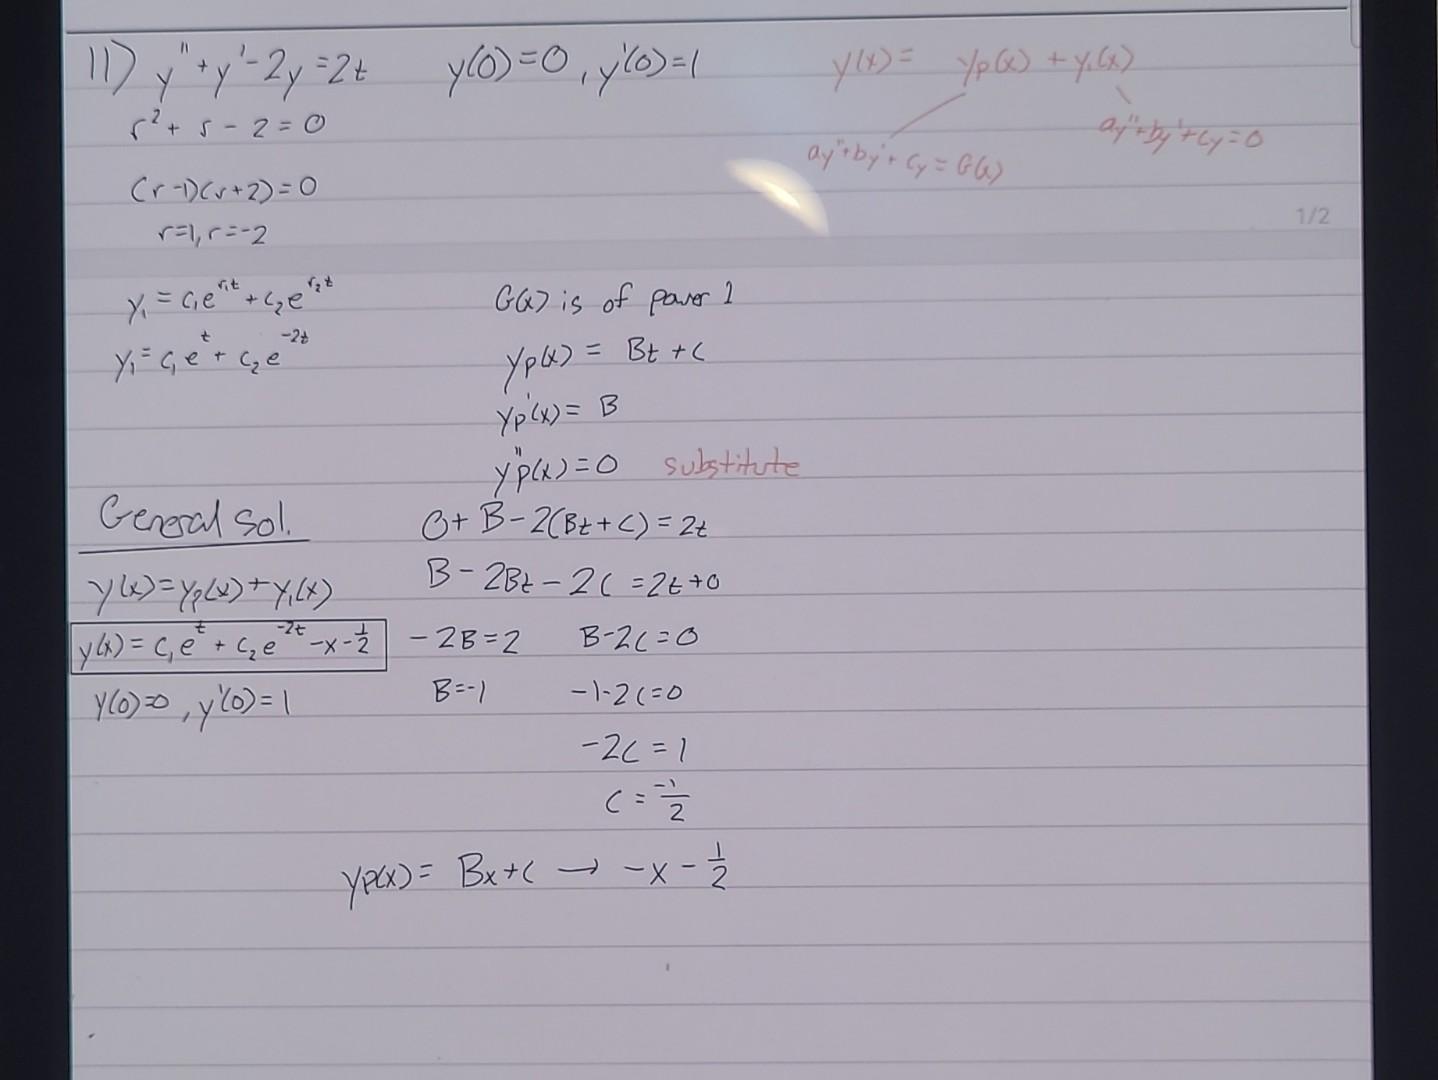 11) y'' + y' - 2y = 2t   y(0)=0 , y'(0)=1
y(x) = yp(x) + y₁(x)
r² + r - 2 = 0
ay''+by'+cy=0
ay''+by'+cy = G(x)
(r-1)(r+2)=0
1/2
r=1, r=-2
y₁ = c₁e^(r₁t) + c₂e^(r₂t)
y₁ = c₁e^t + c₂e^(-2t)
G(x) is of power 1
yp(x) = Bt + C
yp'(x) = B
y''p(x) = 0 substitute
0 + B - 2(Bt + C) = 2t
B - 2Bt - 2C = 2t + 0
-2B = 2   B-2C = 0
B=-1   -1-2C=0
-2C = 1
C = -1/2
yp(x) = Bx+C → -x - 1/2
General Sol.
y(x) = yp(x) + y₁(x)
y(x) = c₁e^t + c₂e^(-2t) -x - 1/2
y(0)=0 , y'(0)=1